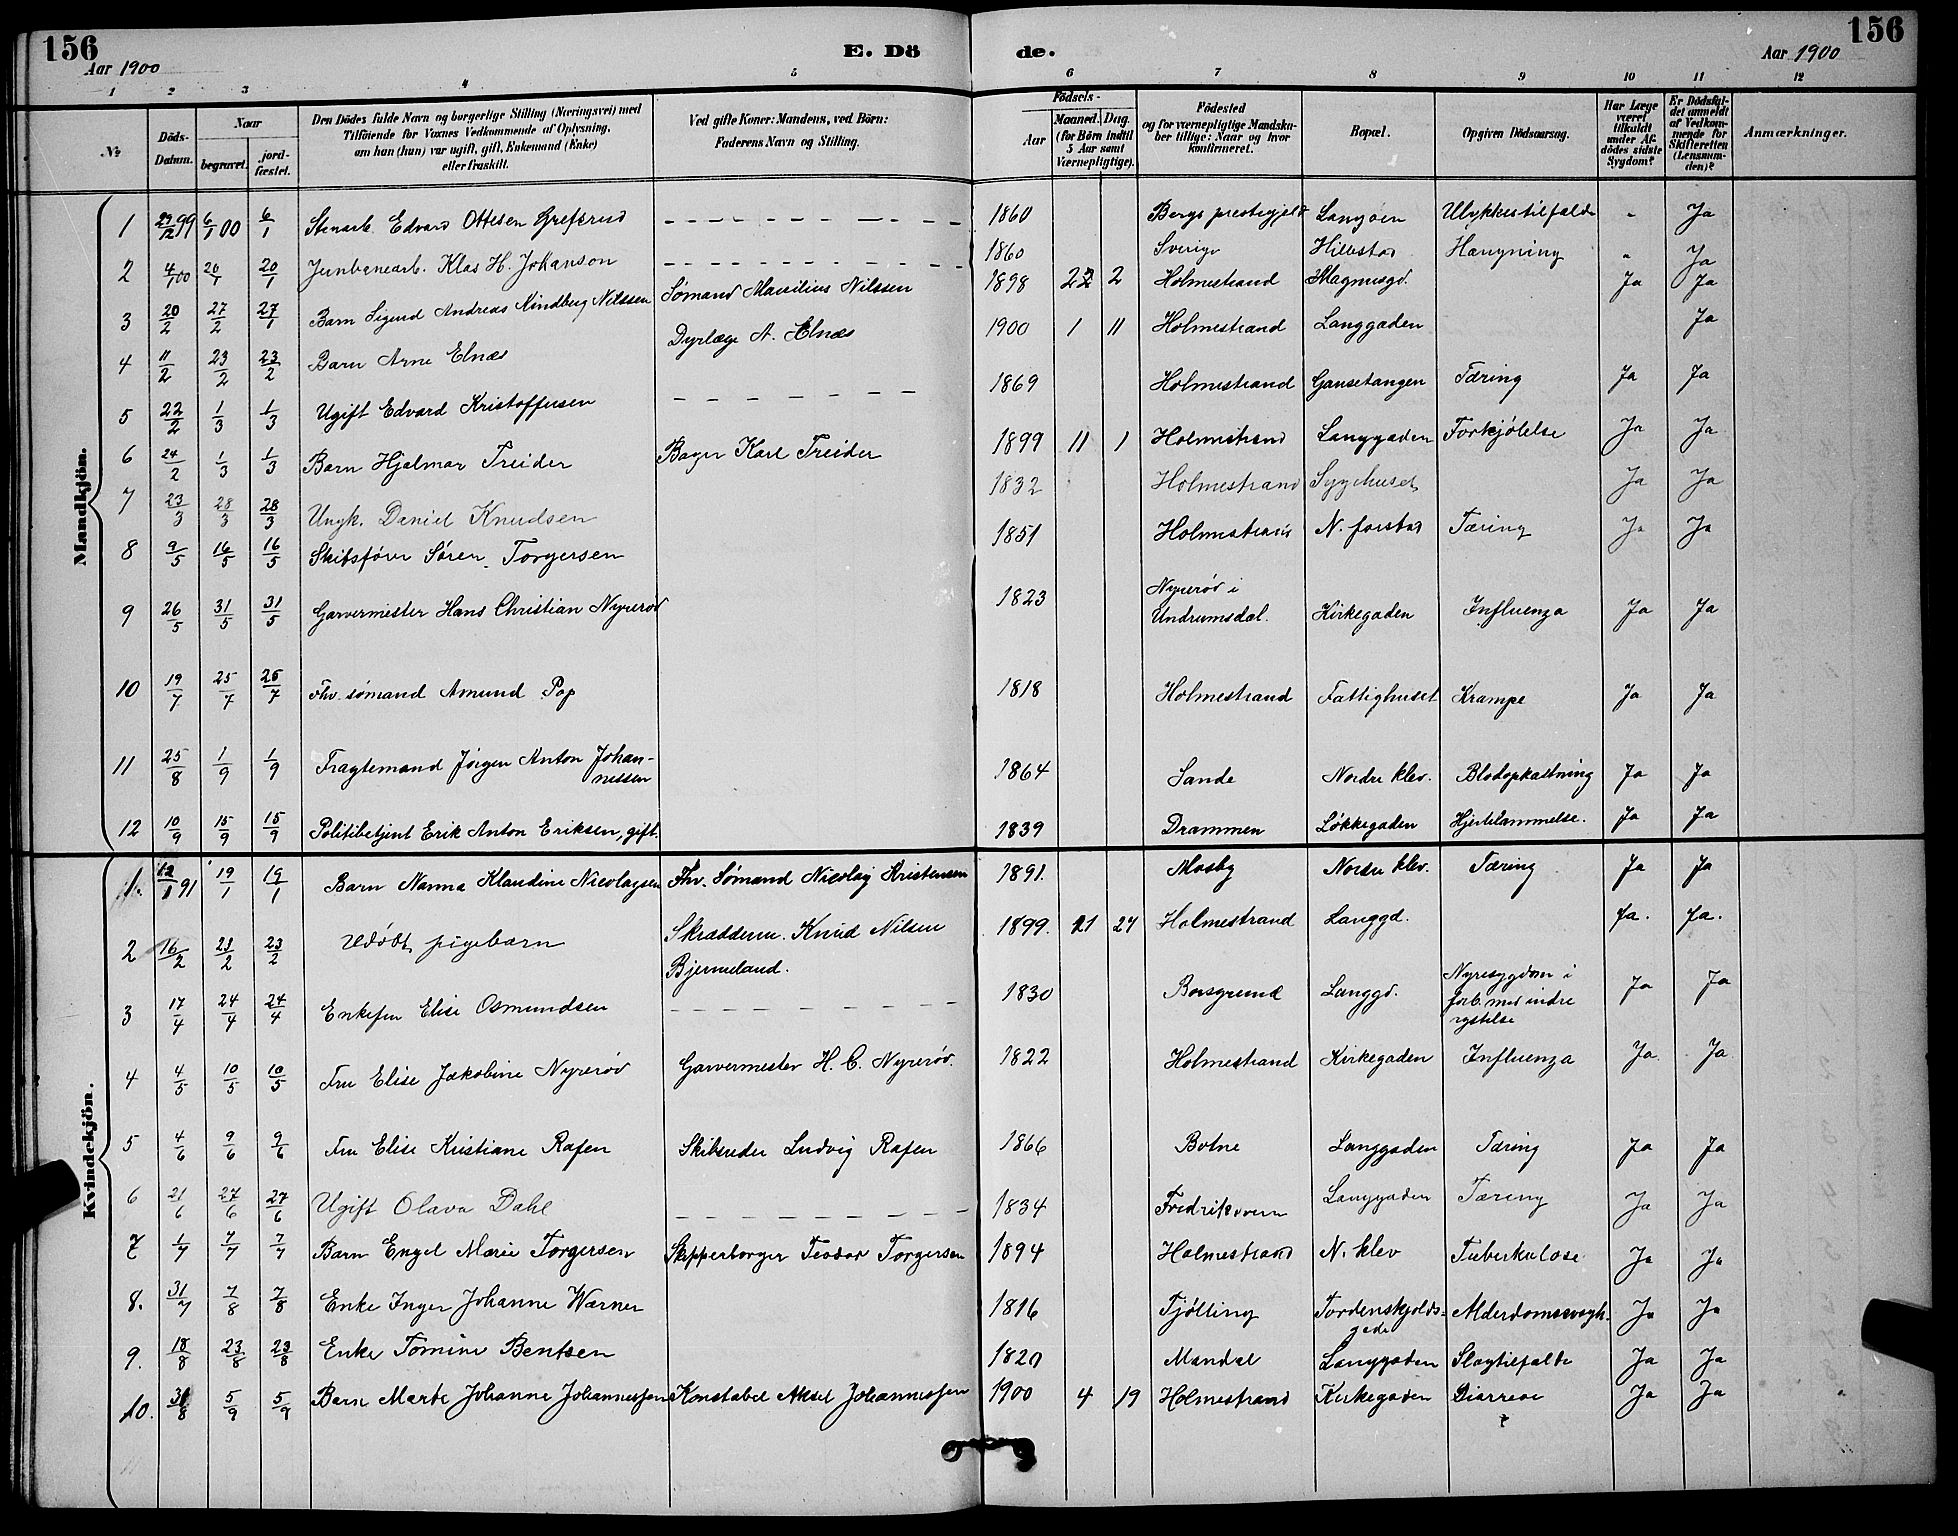 156
Aar 1900
E. Dö
de.
Aar 1900
156
1 2 3 4 5 6 7 8 9 10 11 12
№
Döds-Datum.
Naar
begravet.
jord-fæstet.
Den Dödes fulde Navn og borgerlige Stilling (Næringsvei) med
Tilföiende for Voxnes Vedkommende af Oplysning,
om han (hun) var ugift, gift, Enkemand (Enke)
eller fraskilt.
Ved gifte Koner: Mandens, ved Börn:
Faderens Navn og Stilling.
Födsels-
Aar
Maaned. Dag.
(for Börn indtil
5 Aar samt
Værnepligtige).
Födested
og for værnepligtige Mandska-
ber tillige: Naar og hvor
konfirmeret.
Bopæl.
Opgiven Dödsaarsag.
Har Læge
været
tilkaldt
under Af-
dödes sidste
Sygdom?
Er Dödsfal-
det anmeldt
af Vedkom-
mende for
Skifteretten
(Lensman-
den)?
Anmærkninger.
Mandkjön.
1 29/12 99 6/1 00 6/1 Stenarb. Edvard Ottesen Grefsrud – – – 1860 Bergs prestegjeld Langøen Ulykkestilfælde " Ja
2 4/1 00 20/1 20/1 Jernbanearb. Klas H. Johanson – – – 1860 Sverige Hillestad Hængning " Ja
3 20/2 27/2 27/1 Barn Sigurd Andreas Lindberg Nilssen Sømand Maurilius Nilssen 1898 2 2 Holmestrand Magnusgd. Ja Ja
4 11/2 23/2 23/2 Barn Arne Elnæs Dyrlæge A. Elnæs 1900 1 11 Holmestrand Langgaden Ja
5 22/2 1/3 1/3 Ugift Edvard Kristoffersen – – – 1869 Holmestrand Gausetangen Tæring Ja Ja
6 24/2 1/3 1/3 Barn Hjalmar Treider Bager Karl Treider 1899 11 1 Holmestrand Langgaden Forkjølelse Ja Ja
7 23/3 28/3 28/3 Ungk. Daniel Knudsen 1832 Holmestrand Sygehuset Ja Ja
8 9/5 16/5 16/5 Skibsfører Søren Torgersen 1851 Holmestrand N. forstad Tæring Ja Ja
9 26/5 31/5 31/5 Garvermester Hans Christian Nyrerød 1823 Nyrerød i
Undrumsdal. Kirkegaden Influenza Ja Ja
10 19/7 25/7 25/7 Fhv. sømand Amund Pop 1818 Holmestrand Fattighuset Krampe Ja Ja
11 25/8 1/9 1/9 Fragtemand Jørgen Anton Johan-
nessen 1864 Sande Nordre klev. Blodopkastning Ja Ja
12 10/9 15/9 15/9 Politibetjent Erik Anton Eriksen, gift. 1839 Drammen Løkkegaden Hjertelammelse. Ja Ja
Kvindekjön.
1. 12/1 91 19/1 19/1 Barn Nanna Klaudine Nicolaysen Fhv. Sømand Nicolay Kristensen 1891. Mosby Nordre klev. Tæring Ja Ja
2 16/2 23/2 23/2 Udøbt pigebarn Skræddersv. Knud Nilsen
Bjerneland. 1899. 11 24 Holmestrand Langgd. Ja. Ja.
3 17/4 24/4 24/4 Enkefru Elise Osmundsen – – – 1830 Borsgrund Langgd. Nyresygdom i
forb. med indre
rystelse Ja Ja
4 4/5 10/5 10/5 Fru Elise Jakobine Nyrerød Garvermester H. C. Nyrerød. 1822 Holmestrand Kirkegaden Influenza Ja Ja
5 4/6 9/6 9/6 Fru Elise Kristiane Rafen Skibsreder Ludvig Rafen 1866 Botne Langgaden Tæring Ja Ja
6 21/6 27/6 27/6 Ugift Olava Dahl – – – 1834 Fredriksvern Langgaden Tæring Ja Ja
7 1/7 7/7 7/7 Barn Engel Marie Torgersen Skipperborger Teodor Torgersen 1894 Holmestrand N. klev Tuberkulose Ja Ja
8. 31/7 7/8 7/8 Enke Inger Johanne Wærner 1816 Tjølling Tordenskjolds-
gade Alderdomssvagh. Ja Ja
9. 18/8 23/8 23/8 Enke Tomine Bentsen 1820 Mandal Langgaden Slagtilfælde Ja Ja
10. 31/8 5/9 5/9 Barn Marte Johanne Johannessen Konstabel Aksel Johannessen 1900 4 19 Holmestrand Kirkegaden Diarreae Ja Ja